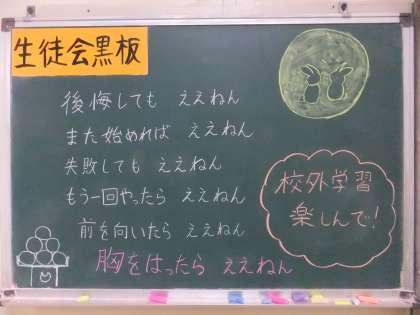 生徒会黒板
後悔しても ええねん
また始めれば ええねん
失敗しても ええねん
もう一回やったら ええねん
前を向いたら ええねん
胸をはったら ええねん
校外学習
楽しんで!